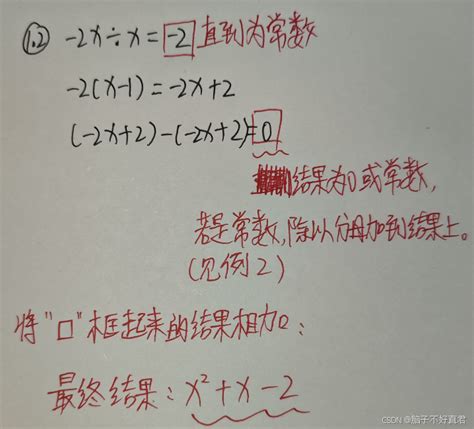 1.2 -2x÷x=-2 直到为常数
-2(x-1)=-2x+2
(-2x+2)-(-2x+2)=0
结果为0或常数,
若是常数,除以分母加到结果上。
(见例2)
将"□"框起来的结果相加:
最终结果:x²+x-2
CSDN @脑子不好真君